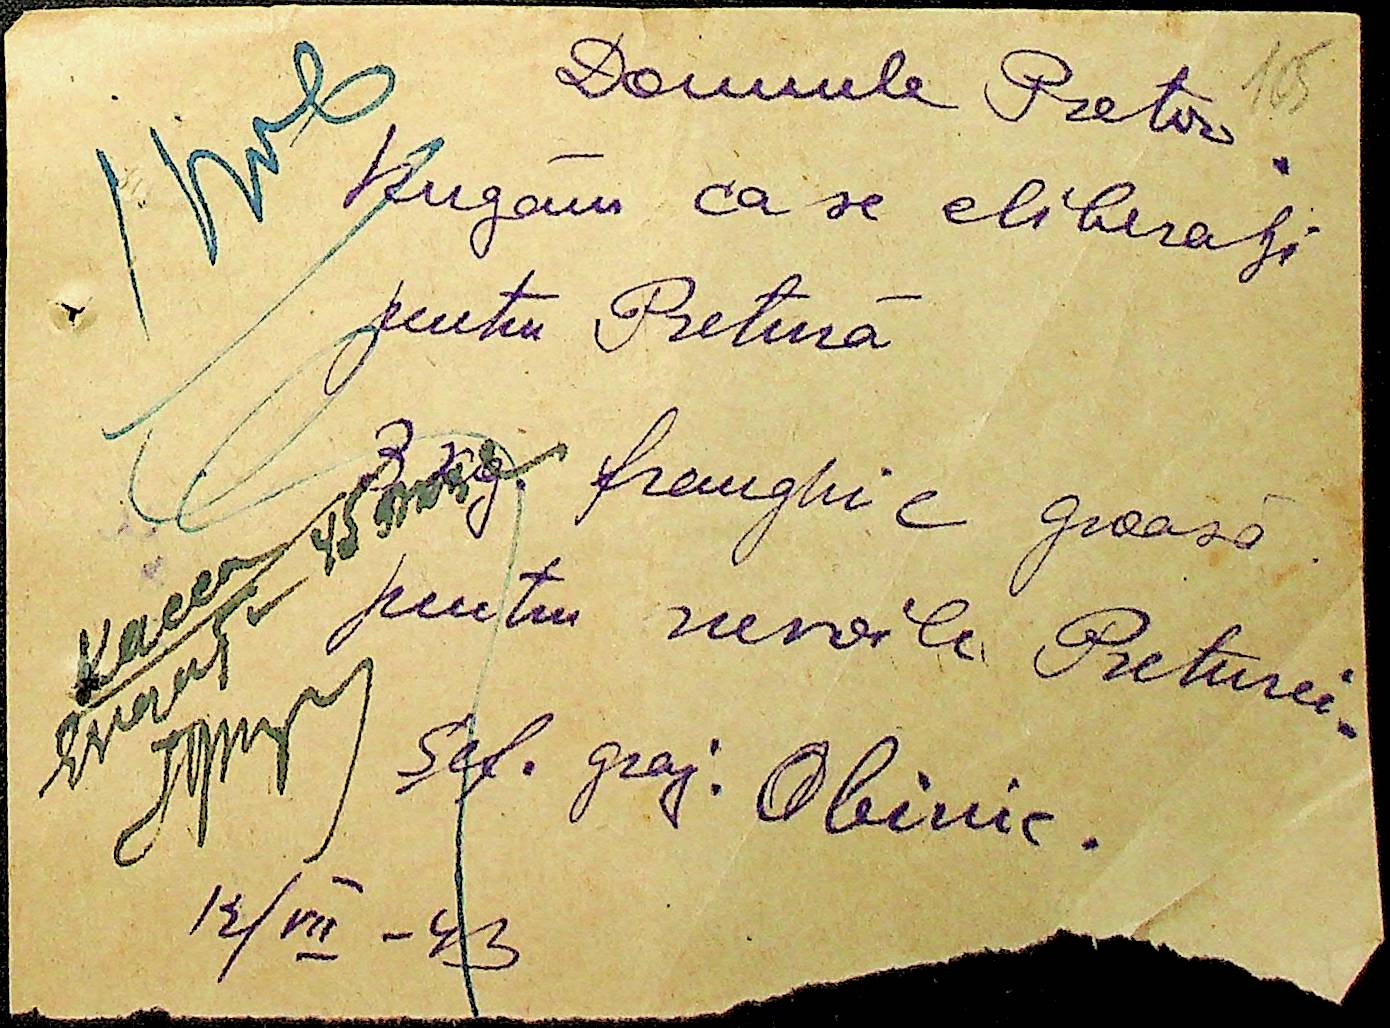 Domnule Pretor.
165
Rugăm ca se eliberați
pentru Pretură
3 kg. franghie groasă.
pentru nevoile Preturei.
Șef. graj. Obinic.
12/VII -43